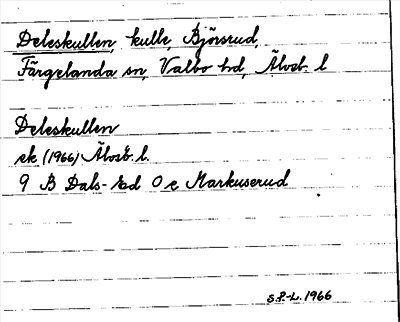 Deleskullen, kulle, Björsrud,
Färgelanda sn, Valbo hd, Älvsb. l
Deleskullen
ek (1966) Älvsb. l.
9 B Dals-Ed 0 e Markuserud
S.P.-L. 1966